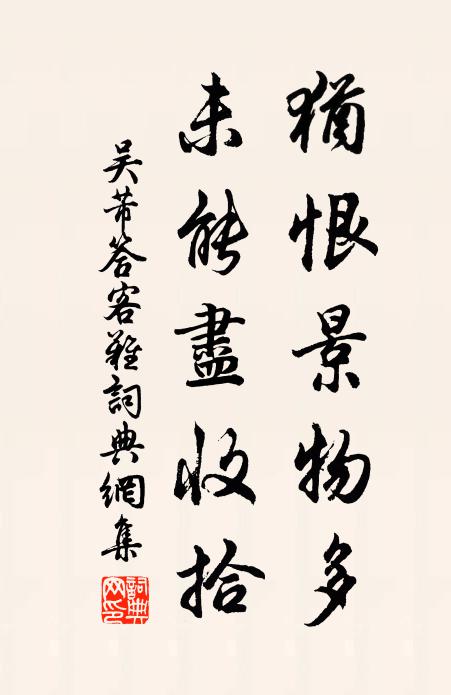 猶恨景物多
未能盡收拾
吳芾答客難詞典網集
詞典網印